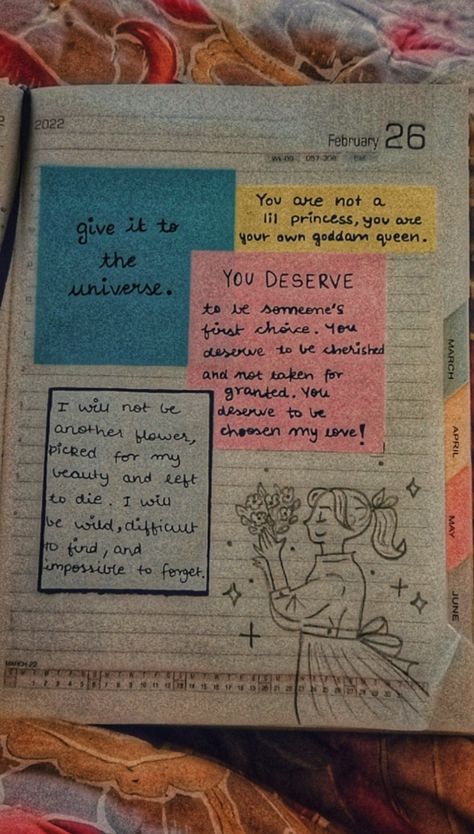 2022
February 26
WK-09 057-308
give it to
the
universe.
You are not a
lil princess, you are
your own goddam queen.
YOU DESERVE
to be someone's
first choice. You
deserve to be cherished
and not taken for
granted. You
deserve to be
choosen my love!
I will not be
another flower,
picked for my
beauty and left
to die. I will
be wild, difficult
to find, and
impossible to forget.
MARCH
APRIL
MAY
JUNE
MARCH 22